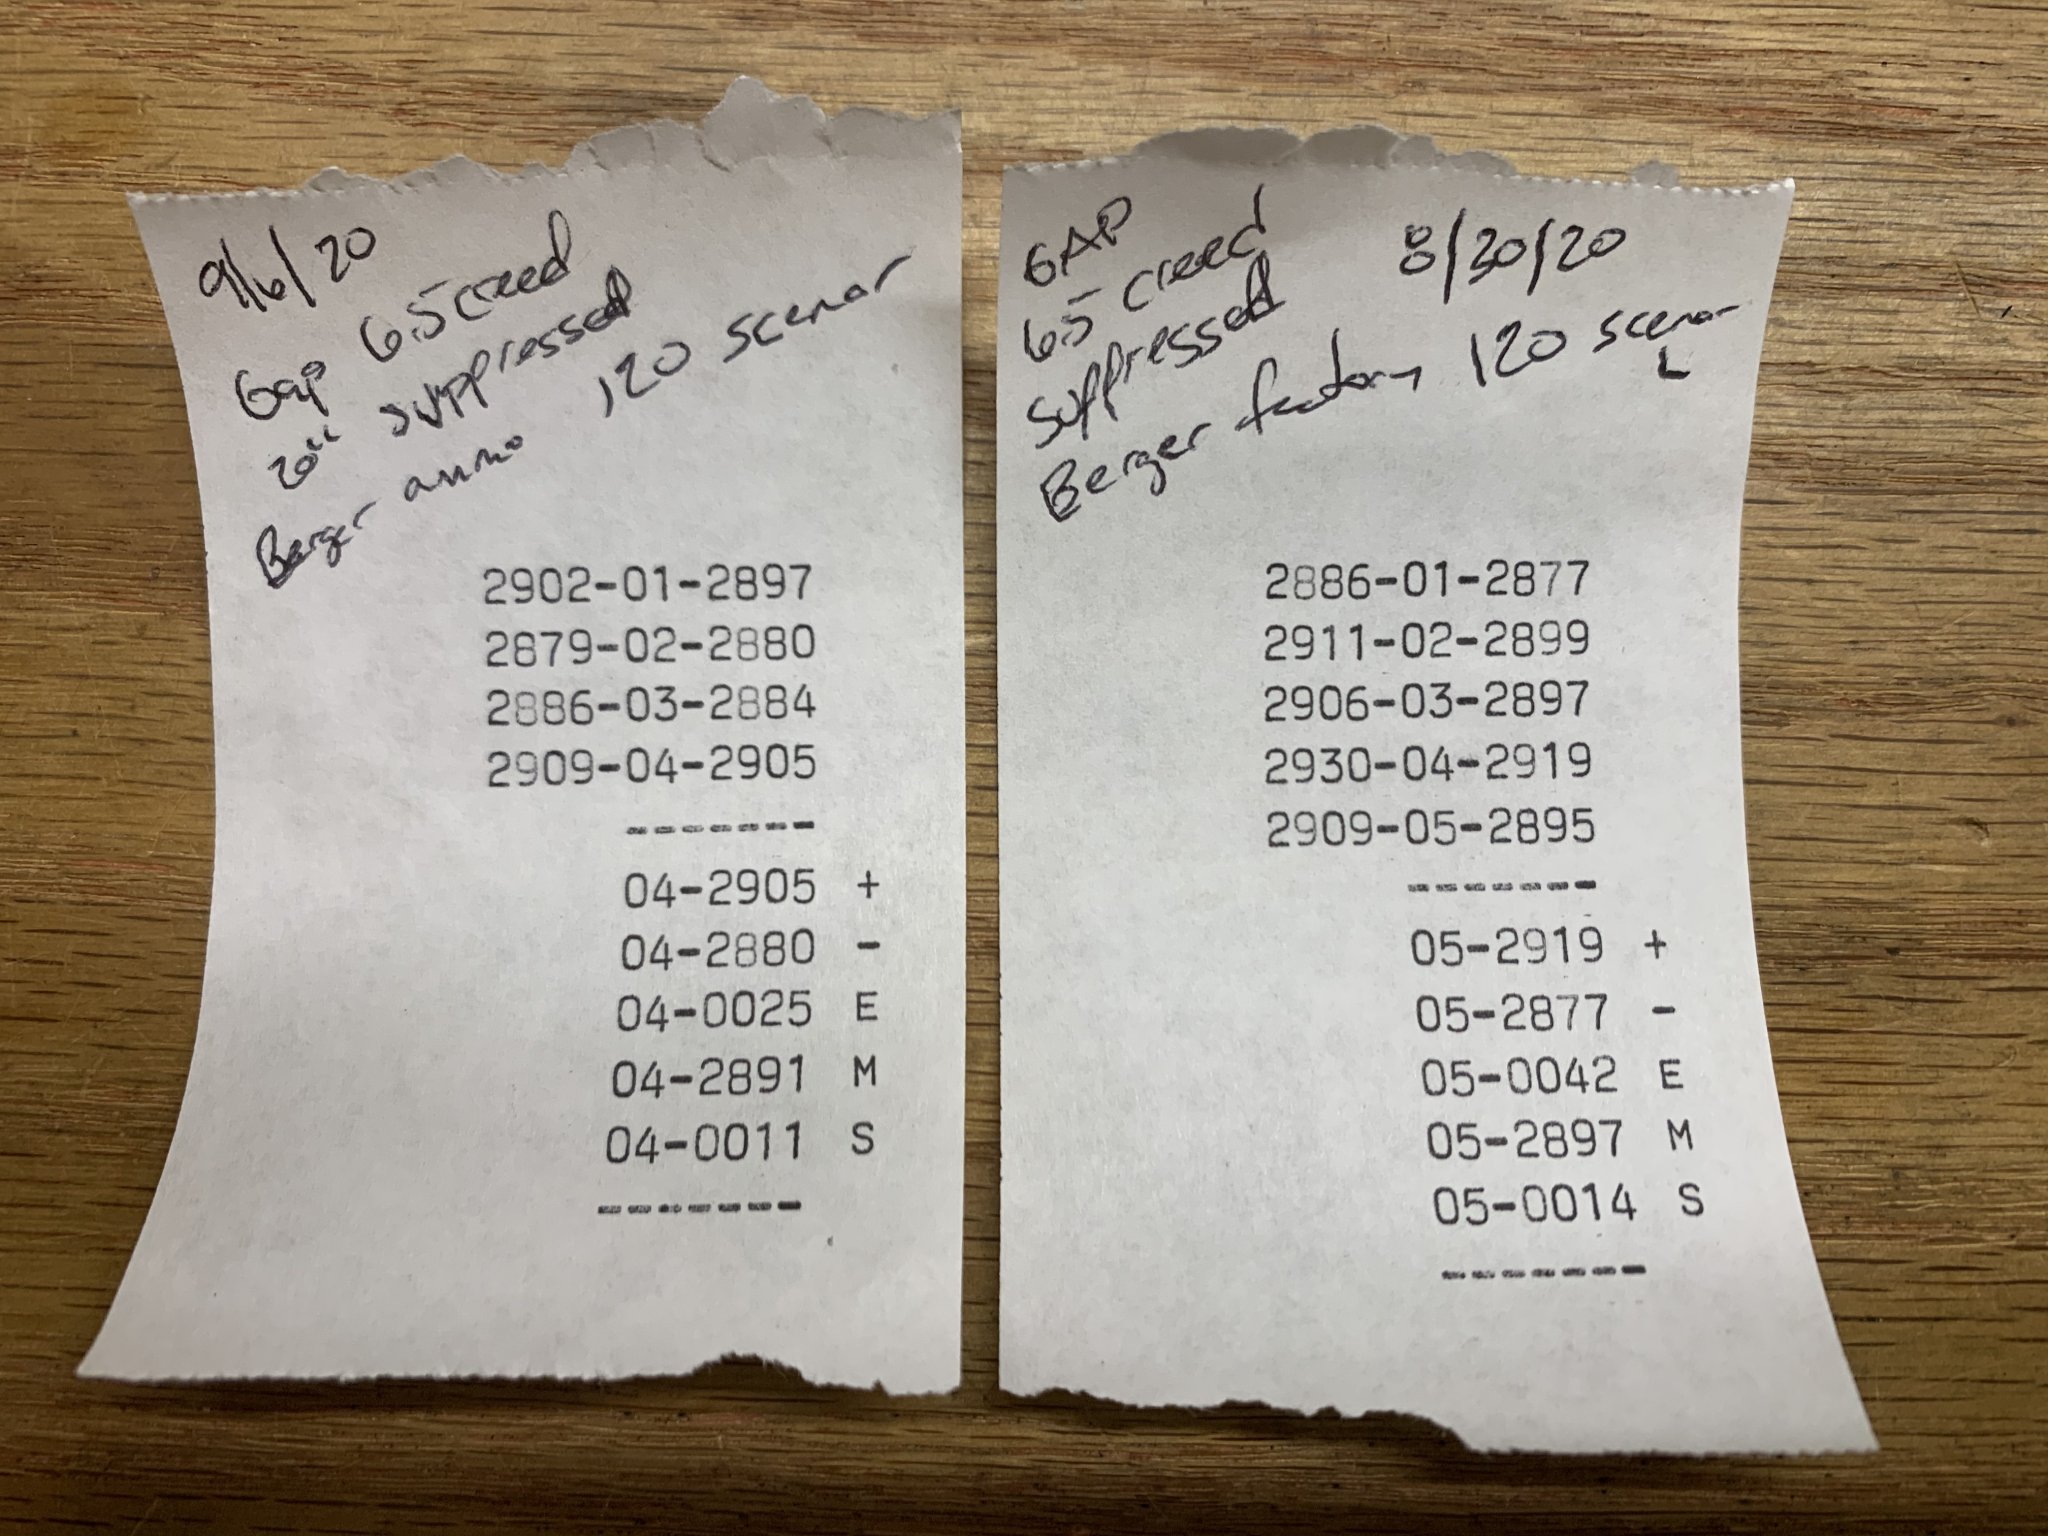 9/6/20
Gap 6.5 creed
20" suppressed
Berger ammo 120 scenar
2902-01-2897
2879-02-2880
2886-03-2884
2909-04-2905
-------
04-2905 +
04-2880 -
04-0025 E
04-2891 M
04-0011 S
-------
GAP
6.5 creed
8/30/20
suppressed
Berger factory 120 scenar
L
2886-01-2877
2911-02-2899
2906-03-2897
2930-04-2919
2909-05-2895
-------
05-2919 +
05-2877 -
05-0042 E
05-2897 M
05-0014 S
-------